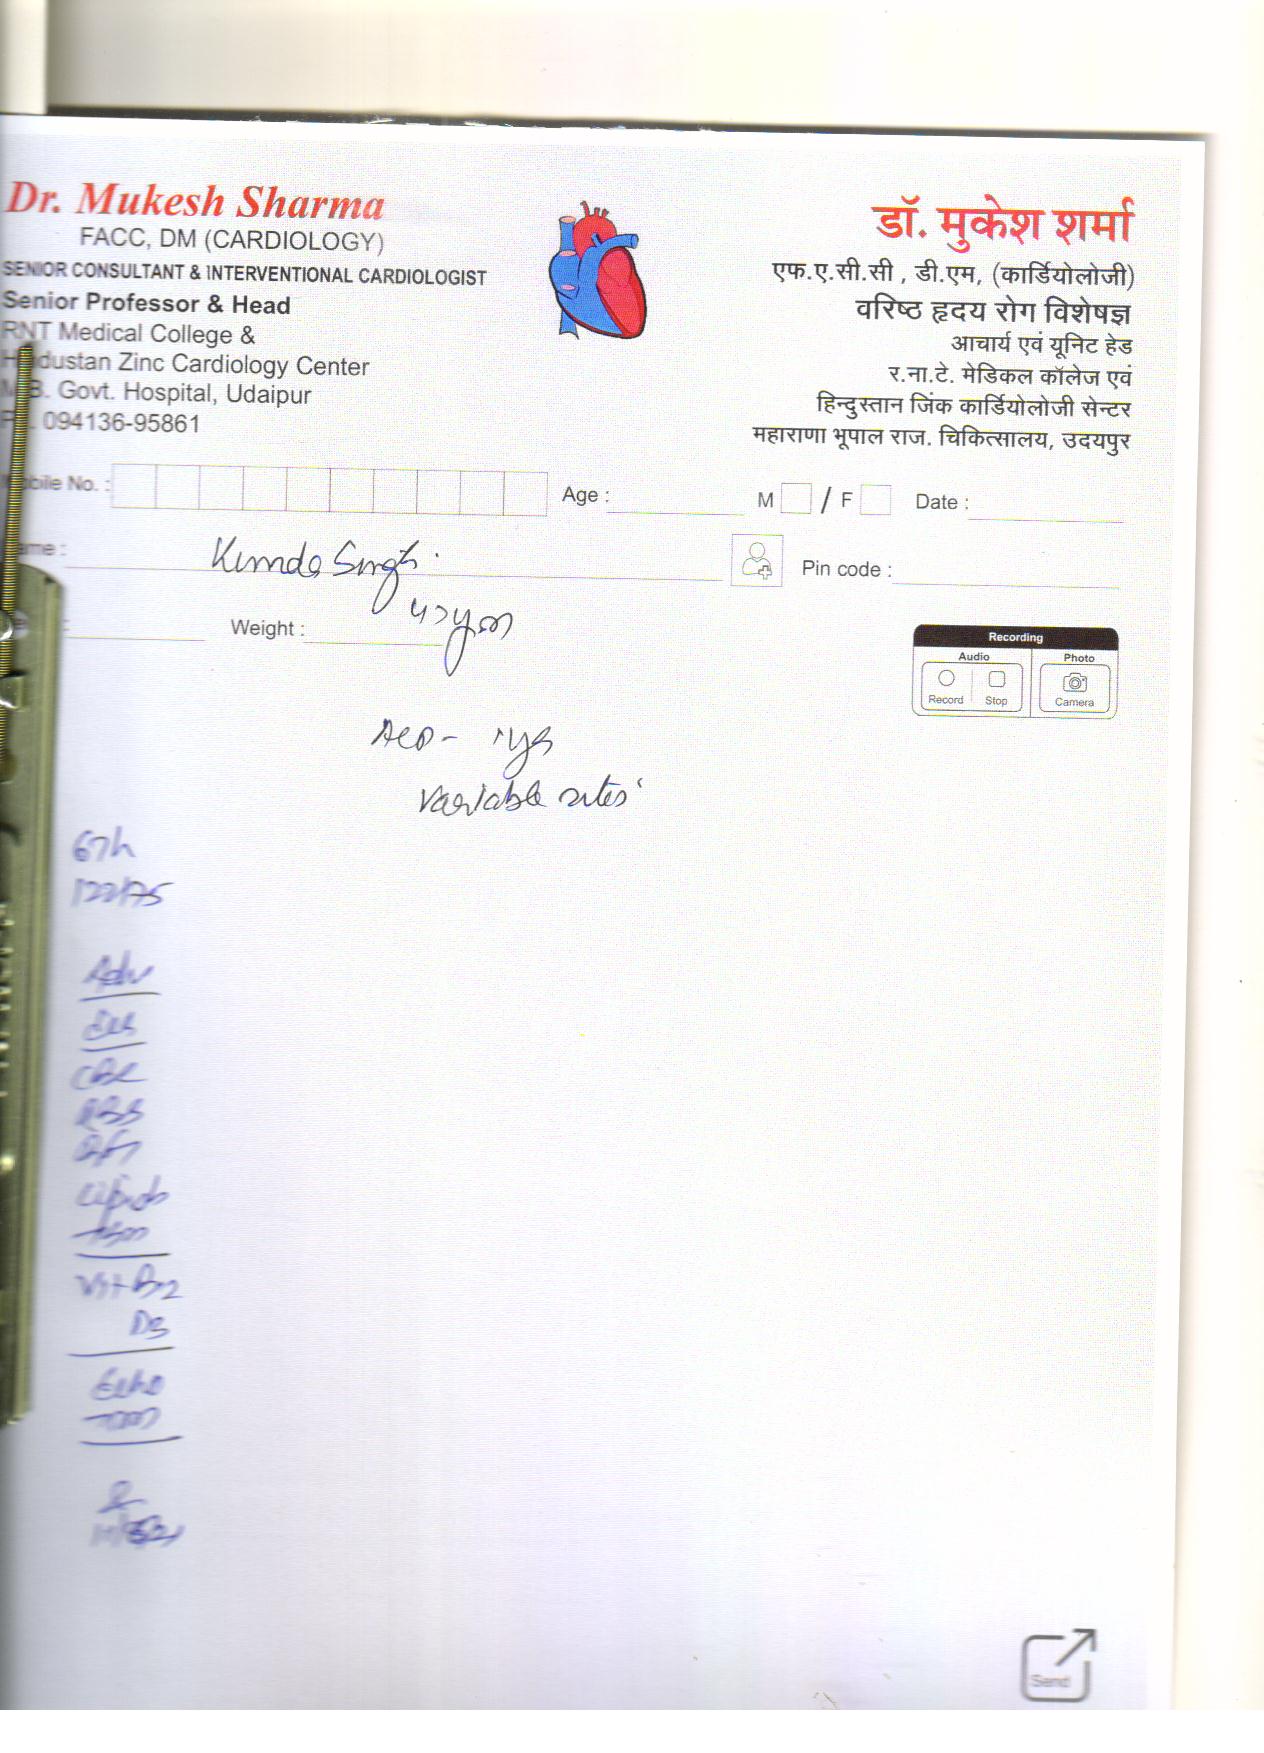 Dr. Mukesh Sharma
FACC, DM (CARDIOLOGY)
SENIOR CONSULTANT & INTERVENTIONAL CARDIOLOGIST
Senior Professor & Head
RNT Medical College &
Hindustan Zinc Cardiology Center
M.B. Govt. Hospital, Udaipur
094136-95861
डॉ. मुकेश शर्मा
एफ.ए.सी.सी , डी.एम, (कार्डियोलोजी)
वरिष्ठ हृदय रोग विशेषज्ञ
आचार्य एवं यूनिट हेड
र.ना.टे. मेडिकल कॉलेज एवं
हिन्दुस्तान जिंक कार्डियोलोजी सेन्टर
महाराणा भूपाल राज. चिकित्सालय, उदयपुर
Mobile No. : Age : M / F Date :
Name : Singh Pin code :
Weight :
Recording
Audio Photo
Record Stop Camera
variable sites
67h
122/75
Adv
CBC
RBS
RFT
Lipid
Vit B12
D3
Echo
Send